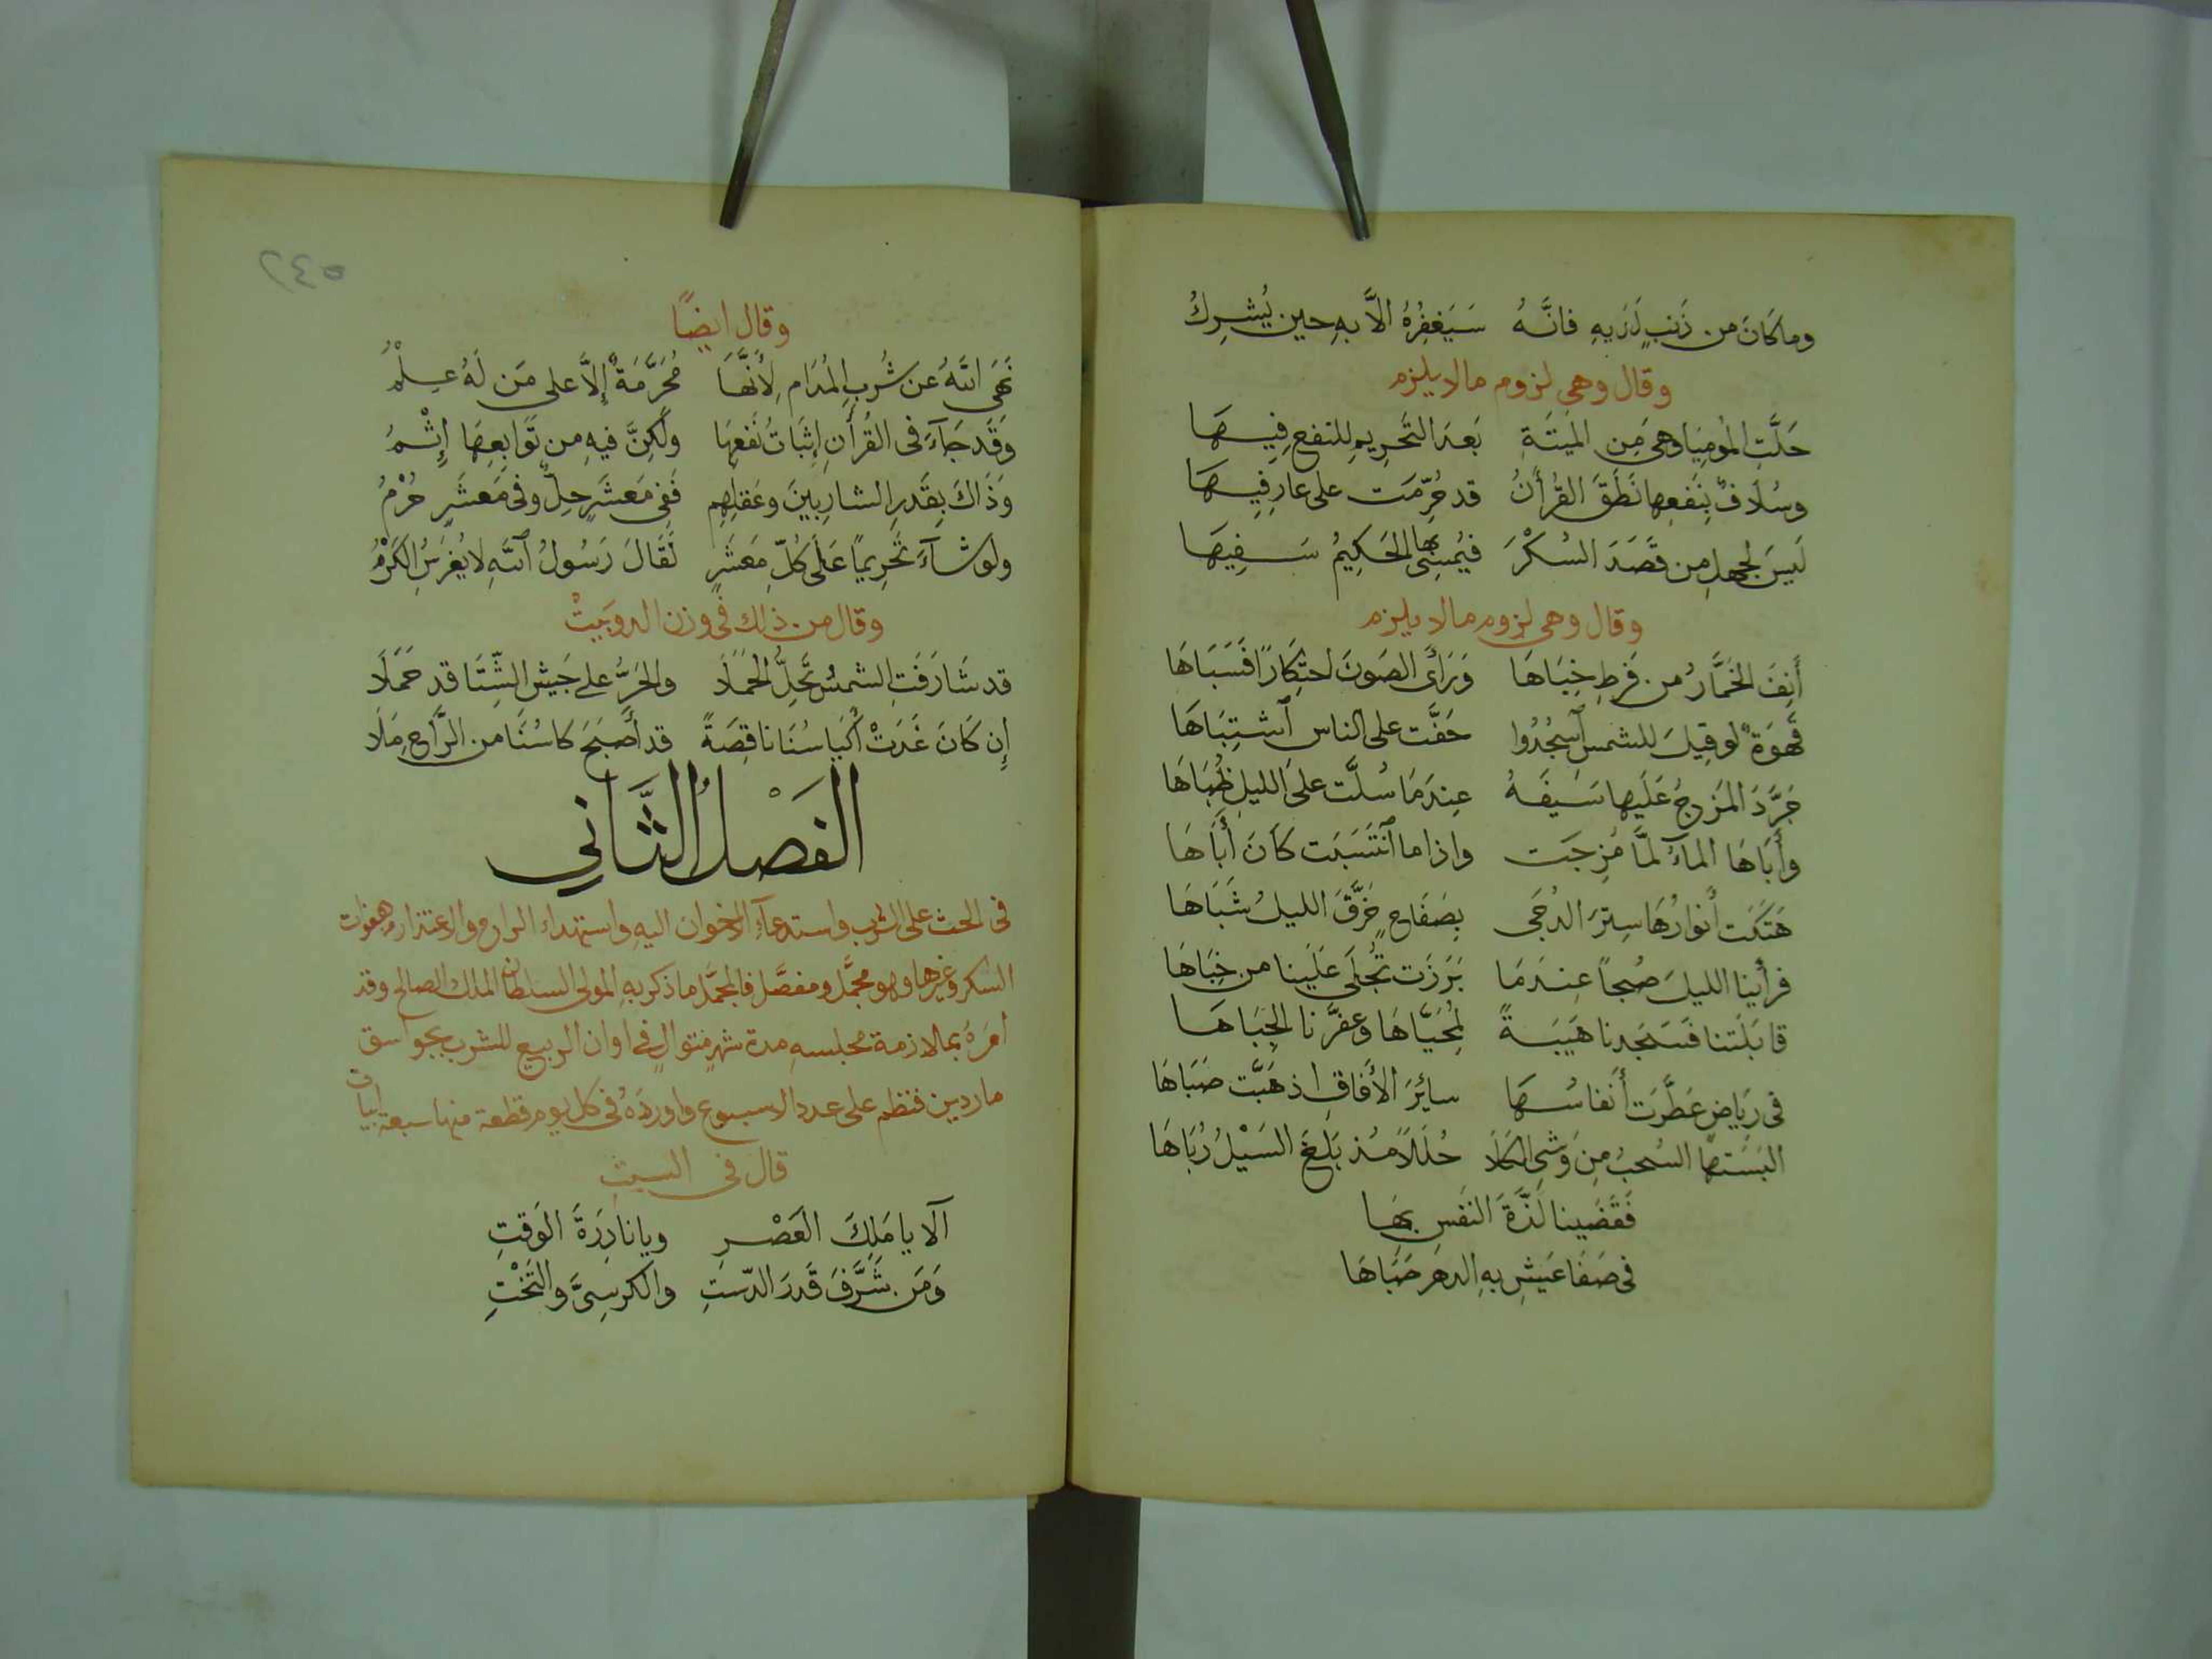 وما كَانَ من ذَنبٍ لَدَيهِ فانَّهُ سَيَغفِرُهُ الاَّ بهِ حين يُشرِكُ
وقال وهي لزوم مالا يلزم
حَلَّتِ المُوميَا وهيَ مِن المَيتَةِ بَعدَ التَحرِيمِ للنفعِ فِيهَا
وسُلَافٌ بِنَفعِها نَطَقَ القُرأنُ قد حُرِّمَت على عارِفِيهَا
لَيسَ لجهلٍ من قَصَدَ السُكْرَ فيُمسِى بها الحَكِيمُ سَفِيهَا
وقال وهي لزوم مالا يلزم
أَنِفَ الخَمَّارُ من فَرطِ خِبَاهَا وَرَأَى الصَونَ احتِكَارًا فَسَبَاهَا
قَهوَةٌ لو قِيلَ للشمسِ ٱسجُدُوا خَفَّت على الناس ٱشتِبَاهَا
جَرَّدَ المَزجُ عَلَيها سَيفَهُ عِندَمَا سُلَّت علَى الليلِ ظُبَاهَا
وأَبَاهَا المآءُ لمَّا مُزِجَت واذا ما ٱنتَسَبَت كَانَ أَبَاهَا
هَتَكَت أنوارُهَا سِترَ الدُجَى بِصَفَاحٍ خَرَّقَ الليلُ شَبَاهَا
فرأَينا الليلَ صُبحاً عِندَمَا بَرَزَت تُجلَى عَلَينا من خِبَاهَا
قابَلَتنا فَسَجَدنا هَيبَةً لِمُحَيَّاهَا وعفرَّنا الجِبَاهَا
في رِيَاضٍ عَطَّرَت أنفاسُهَا سائِرَ الأَفاقِ اذ هَبَّت صَبَاهَا
البَسَتهَا السُحبُ مِن وَشيِ الكَلَا حُلَلاً مُذ بَلَغَ السَيْلُ رُبَاهَا
فَقَضَينا لَذَّةَ النَفسِ بِهَا
في صَفَا عَيشٍ بهِ الدهرَ حَبَاهَا
٥٤٢
وقال ايضًا
نَهَى اللهُ عن شُربِ المُدَام لِأَنَّهَا مُحَرَّمَةٌ إِلاَّ على مَن لَهُ عِلْمُ
وَقَد جَآءَ فى القُرأنِ إِثبَاتُ نَفعِهَا ولَكِنَّ فيهِ من تَوَابِعِهَا إِثْمُ
وَذَاكَ بِقَدرِ الشارِبينَ وعَقلِهِم فَفِي مَعشَرٍ حِلٌّ وفى مَعشَرٍ حُرْمُ
ولو شآءَ تَحرِيمًا عَلَى كُلِّ مَعشَرٍ لَقَالَ رَسُولُ ٱللهِ لا يُغرَسُ الكَرْمُ
وقال من ذلك في وزن الدوبَيتْ
قد شَارَفَتِ الشمسُ تَحِلُّ الحُمَلَا والحَرُّ على جَيشِ الشِّتَا قد حَمَلَا
إِن كَانَ غَدَتْ أَكيَاسُنَا ناقِصَةً قد أَصبَحَ كاسُنَا من الرَّاحِ مَلَا
الفَصْلُ الثَّاني
فى الحث على الشرب واستدعآءِ الاخوان اليهِ واستهداء الراح والاعتذار وهفوات
السكر وغيرها وهو مجمَّل ومفصَّل فالمجمَّل ما ذكر بهِ المولى السلطان الملك الصالح وقد
امَرَهُ بملازمة مجلسهِ مدة شهرٍ متوالٍ في اوان الربيع للشرب بجواسق
ماردين فنظم على عدد الاسبوع واوردَهُ في كل يوم قطعة منها سبعة ابيات
قال في السبت
ألا يا مَلِكَ العَصْرِ ويا نادِرَةَ الوَقتِ
وَمَن شَرَّفَ قَدرَ الدّستِ والكرسِىَّ والتَخْتِ